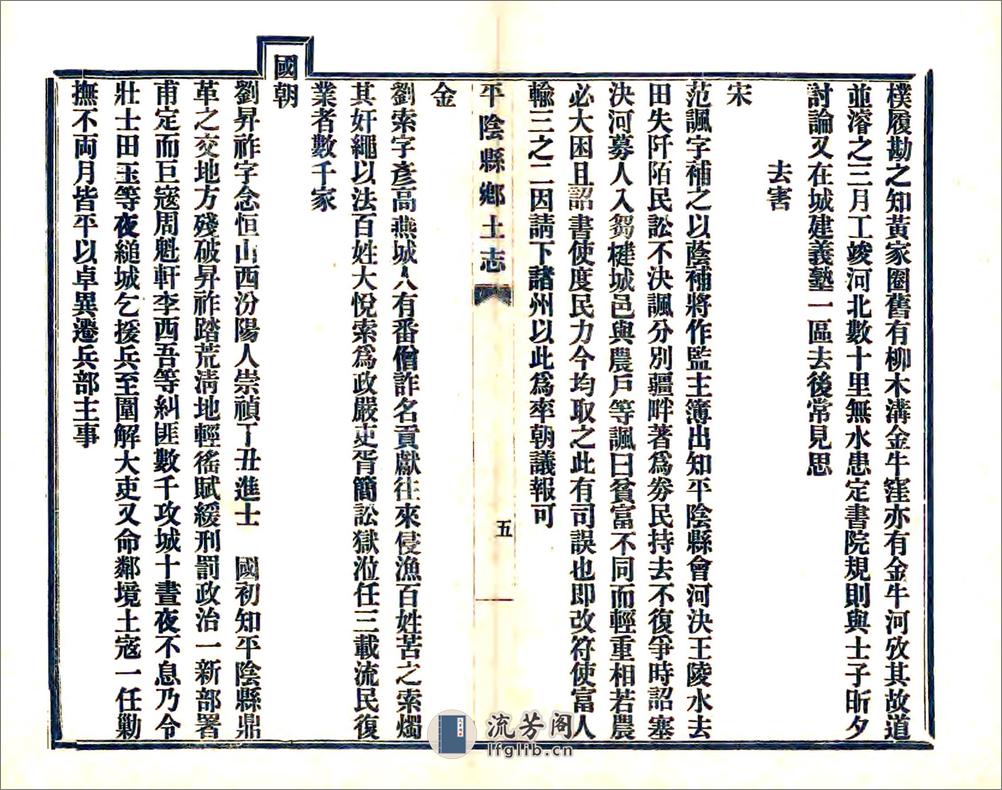 樸履勘之知黃家圈舊有柳木溝金牛窪亦有金牛河攷其故道
並濬之三月工竣河北數十里無水患定書院規則與士子昕夕
討論又在城建義塾一區去後常見思
去害
宋
范諷字補之以蔭補將作監主簿出知平陰縣會河決王陵水去
田失阡陌民訟不決諷分別疆畔著爲券民持去不復爭時詔塞
決河募人入芻楗城邑與農戶等諷曰貧富不同而輕重相若農
必大困且詔書使度民力今均取之此有司誤也即改符使富人
輸三之二因請下諸州以此爲率朝議報可
平陰縣鄉土志
五
金
劉索字彥高燕城人有番僧詐名貢獻往來侵漁百姓苦之索燭
其奸繩以法百姓大悅索爲政嚴吏胥簡訟獄涖任三載流民復
業者數千家
國朝
劉昇祚字念恒山西汾陽人崇禎丁丑進士 國初知平陰縣鼎
革之交地方殘破昇祚踏荒淸地輕徭賦緩刑罰政治一新部署
甫定而巨寇周魁軒李西吾等糾匪數千攻城十晝夜不息乃令
壯士田玉等夜縋城乞援兵至圍解大吏又命鄰境土寇一任勦
撫不兩月皆平以卓異遷兵部主事
流芳阁
lfglib.cn